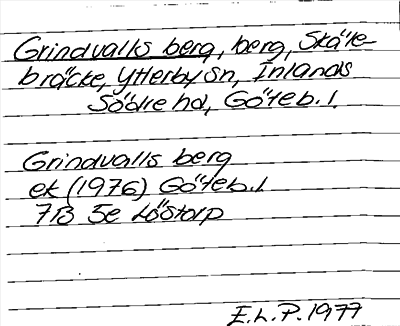 Grindvalls berg, berg, Skälle-
bräcke, Ytterby sn, Inlands
Södre hd, Göteb. l.
Grindvalls berg
ek (1976) Göteb. l
7B 5e Löstorp
E.L.P. 1977